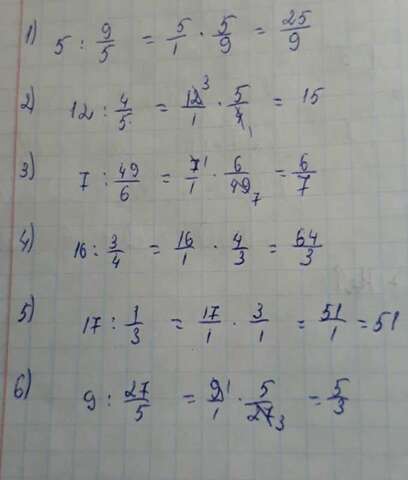 1) 5 : 9/5 = 5/1 · 5/9 = 25/9
2) 12 : 4/5 = 12³/1 · 5/4₁ = 15
3) 7 : 49/6 = 7¹/1 · 6/49₇ = 6/7
4) 16 : 3/4 = 16/1 · 4/3 = 64/3
5) 17 : 1/3 = 17/1 · 3/1 = 51/1 = 51
6) 9 : 27/5 = 9¹/1 · 5/27₃ = 5/3